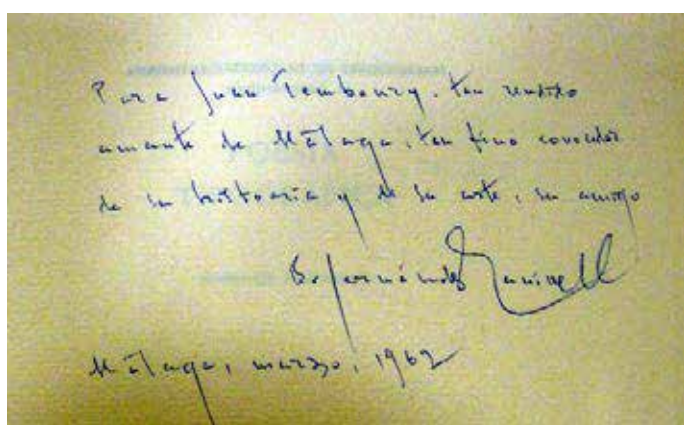 Para Juan Temboury, tan rendido
amante de Málaga, tan fino conocedor
de su historia y de su arte, su amigo
B. Fernández
Málaga, marzo, 1962